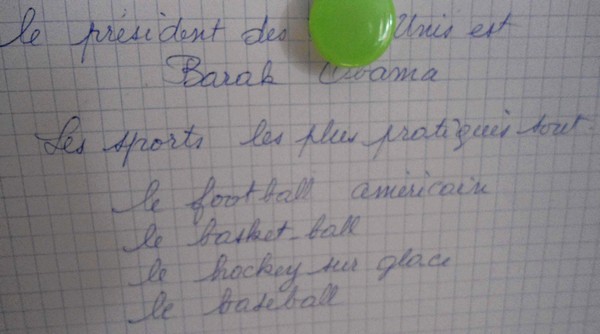 le président des Unis est
Barak Obama
Les sports les plus pratiqués sont
le football américain
le basket-ball
le hockey sur glace
le baseball